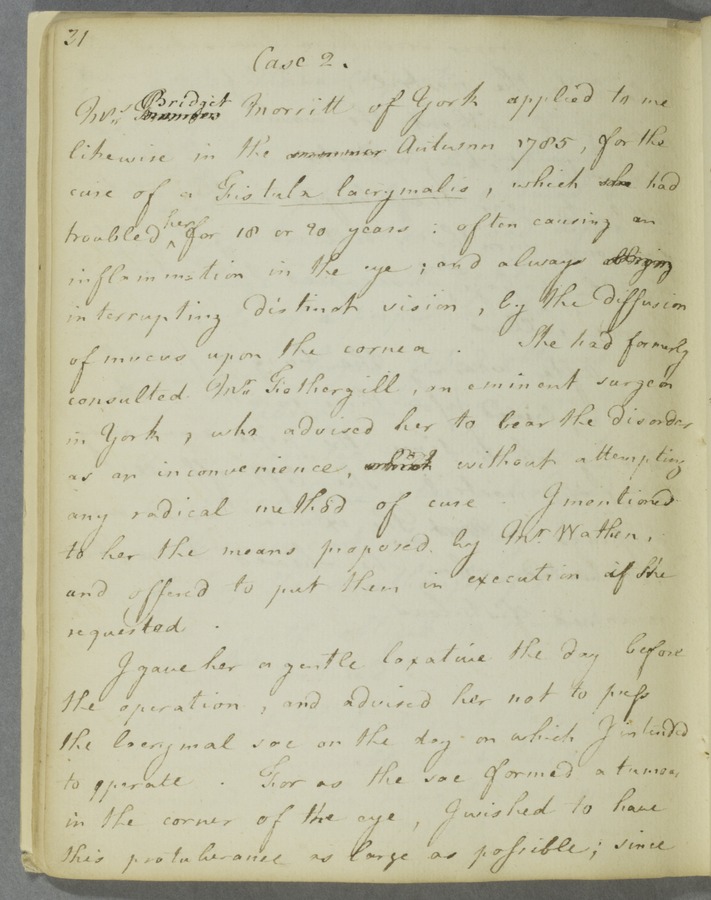 31
Case 2.
Mrs Bridget Morritt of York applied to me
likewise in the summer Autumn 1785, for the
cure of a Fistula lacrymalis, which she had
troubled her for 18 or 20 years: often causing an
inflammation in the eye; and always obliging
interrupting distinct vision, by the diffusion
of mucus upon the cornea. She had formerly
consulted Mr Fothergill, an eminent surgeon
in York, who advised her to bear the disorder
as an inconvenience, which without attempting
any radical method of cure. I mentioned
to her the means proposed by Mr Wathen,
and offered to put them in execution if she
requested.
I gave her a gentle laxative the day before
the operation, and advised her not to press
the lacrymal sac on the day on which I intended
to operate. For as the sac formed a tumor
in the corner of the eye, I wished to have
this protuberance as large as possible; since